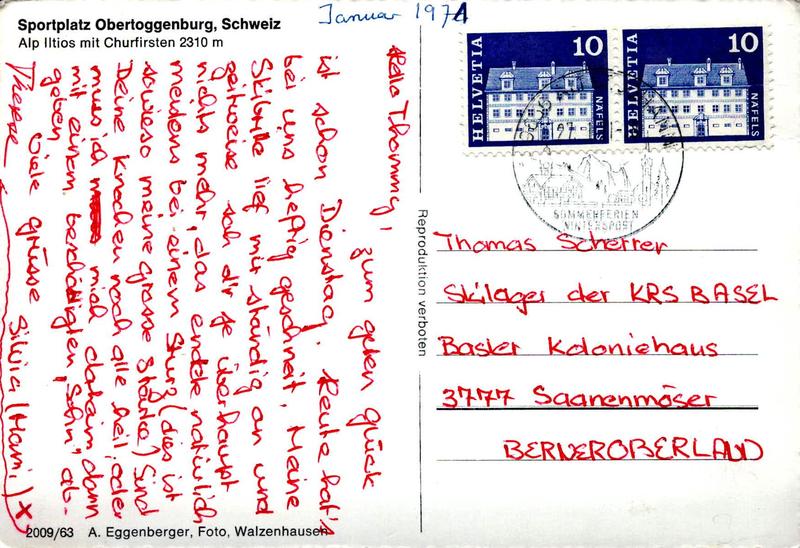 Januar 1971
Sportplatz Obertoggenburg, Schweiz
Alp Iltios mit Churfirsten 2310 m
Hello Thommy,
zum guten glück
ist schon Dienstag. Heute hat's
bei uns heftig geschneit. Meine
Skibrille lief mir ständig an und
zeitweise sah ich überhaupt
nichts mehr, das endete natürlich
meistens bei einem Sturz (dies ist
sowieso meine grosse Stärke) Sind
Deine Knochen noch alle heil, oder
muss ich mich daheim dann
mit einem beschäftigten "Sohn" ab-
geben
Viele grüsse Silvia (Mami) x
Therese
2009/63 A. Eggenberger, Foto, Walzenhausen
Reproduktion verboten
HELVETIA 10 NÄFELS
HELVETIA 10 NÄFELS
SOMMERFERIEN
WINTERSPORT
Thomas Scherrer
Skilager der KRS BASEL
Basler Koloniehaus
3777 Saanenmöser
BERNEROBERLAND